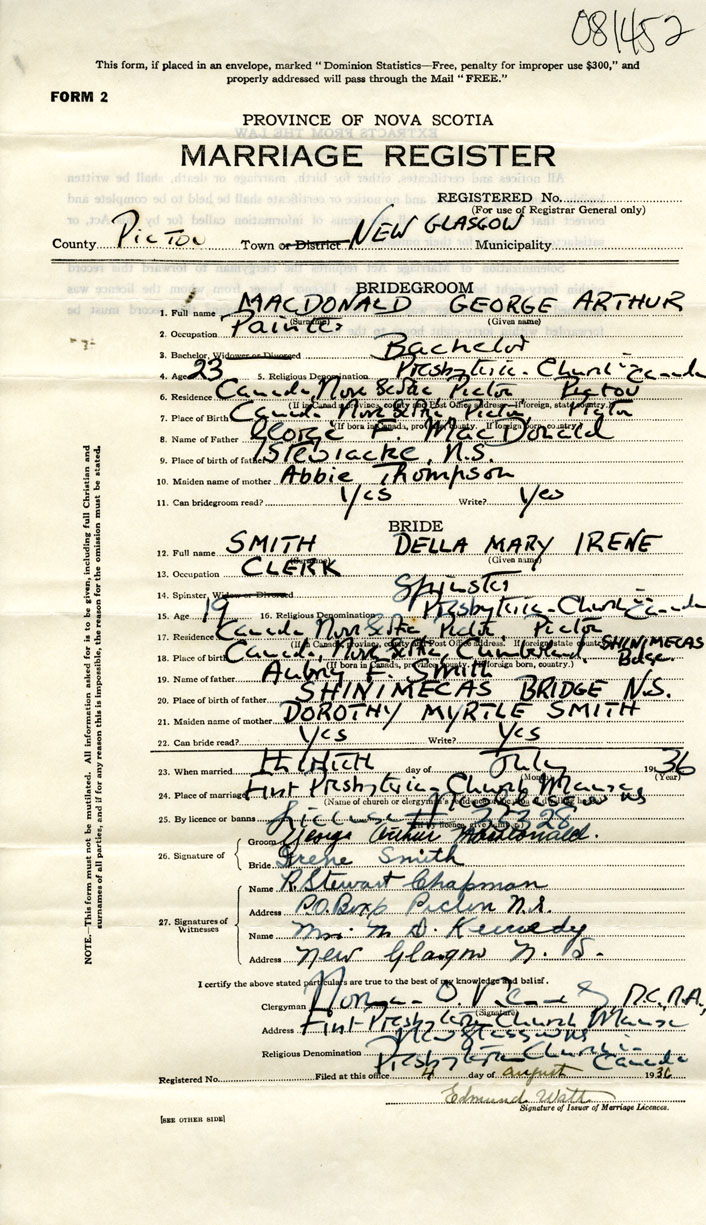 081452
This form, if placed in an envelope, marked "Dominion Statistics—Free, penalty for improper use $300," and
properly addressed will pass through the Mail "FREE."
FORM 2
PROVINCE OF NOVA SCOTIA
MARRIAGE REGISTER
REGISTERED No.
(For use of Registrar General only)
County Pictou Town or District NEW GLASGOW Municipality
BRIDEGROOM
1. Full name MACDONALD GEORGE ARTHUR
(Surname) (Given name)
2. Occupation Painter
3. Bachelor, Widower or Divorced Bachelor
4. Age 23 5. Religious Denomination Presbyterian Church in Canada
6. Residence Canada Nova Scotia Pictou Pictou
(If in Canada, province, county and Post Office address. If foreign, state country.)
7. Place of Birth Canada Nova Scotia Pictou
(If born in Canada, province, county. If foreign born, country.)
8. Name of Father George F. MacDonald
9. Place of birth of father Stewiacke, N.S.
10. Maiden name of mother Abbie Thompson
11. Can bridegroom read? Yes Write? Yes
BRIDE
12. Full name SMITH DELLA MARY IRENE
(Surname) (Given name)
13. Occupation CLERK
14. Spinster, Widow or Divorced Spinster
15. Age 19 16. Religious Denomination Presbyterian Church in Canada
17. Residence Canada Nova Scotia Pictou Pictou
(If in Canada, province, county and Post Office address. If foreign state country.)
18. Place of birth Canada, Nova Scotia Cumberland SHINIMECAS Bdge.
(If born in Canada, province, county. If foreign born, country.)
19. Name of father Aubry F. Smith
20. Place of birth of father SHINIMECAS BRIDGE N.S.
21. Maiden name of mother DOROTHY MYRTLE SMITH
22. Can bride read? Yes Write? Yes
23. When married day of July 1936
(Month) (Year)
24. Place of marriage First Presbyterian Church Manse
(Name of church or clergyman's residence
25. By licence or banns License # 36328
26. Signature of
Groom George Arthur MacDonald.
Bride Irene Smith
27. Signatures of Witnesses
Name R. Stewart Chapman
Address P.O. Box Pictou N.S.
Name Mrs. M. D. Kennedy
Address New Glasgow N. S.
I certify the above stated particulars are true to the best of my knowledge and belief.
Clergyman Norman D.
(Signature)
Address First Presbyterian Church Manse
New Glasgow NS
Religious Denomination Presbyterian Church in Canada
Registered No. Filed at this office 4 day of august 1936
Edmund Watt
Signature of Issuer of Marriage Licences.
[SEE OTHER SIDE]
NOTE.—This form must not be mutilated. All information asked for is to be given, including full Christian and
surnames of all parties, and if for any reason this is impossible, the reason for the omission must be stated.